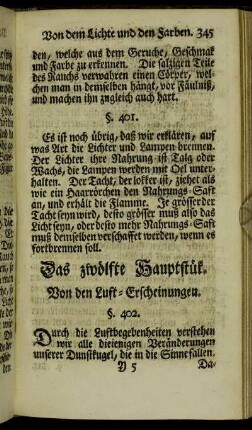 Von dem Lichte und den Farben. 345
den, welche aus dem Geruche, Geschmak
und Farbe zu erkennen. Die salzigen Teile
des Rauchs verwahren einen Cörper, wel-
chen man in demselben hängt, vor Fäulniß,
und machen ihn zugleich auch hart.
§. 401.
Es ist noch übrig, daß wir erklären, auf
was Art die Lichter und Lampen brennen.
Der Lichter ihre Nahrung ist Talg oder
Wachs, die Lampen werden mit Oel unter-
halten. Der Tacht, der lokker ist, ziehet als
wie ein Haarrörchen den Nahrungs-Saft
an, und erhält die Flamme. Je grösser der
Tacht seyn wird, desto grösser muß also das
Licht seyn, oder desto mehr Nahrungs-Saft
muß demselben verschaffet werden, wenn es
fortbrennen soll.
Das zwölfte Hauptstük.
Von den Luft-Erscheinungen.
§. 402.
Durch die Luftbegebenheiten verstehen
wir alle dieienigen Veränderungen
unserer Dunstkugel, die in die Sinne fallen.
Y 5 Da-